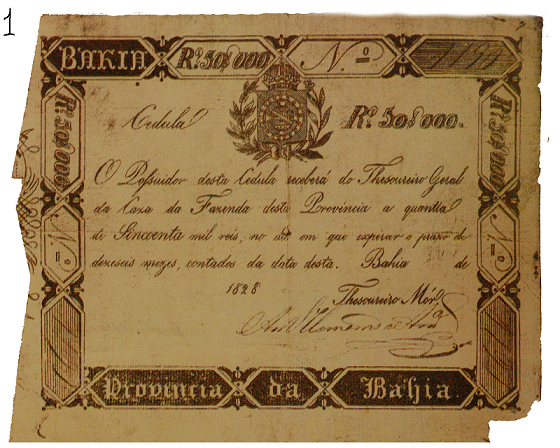 1
BAHIA Rs. 50$000 No.
Cedula Rs. 50$000.
O Possuidor desta Cedula receberá do Thesoureiro Geral
da Caza da Fazenda desta Provincia a quantia
de Sincoenta mil reis, no dia em que expirar o prazo de
dezeseis mezes, contados da data desta. Bahia de
1828
Thesoureiro Mór
Rs. 50$000
No.
Rs. 50$000
No.
Provincia da Bahia.